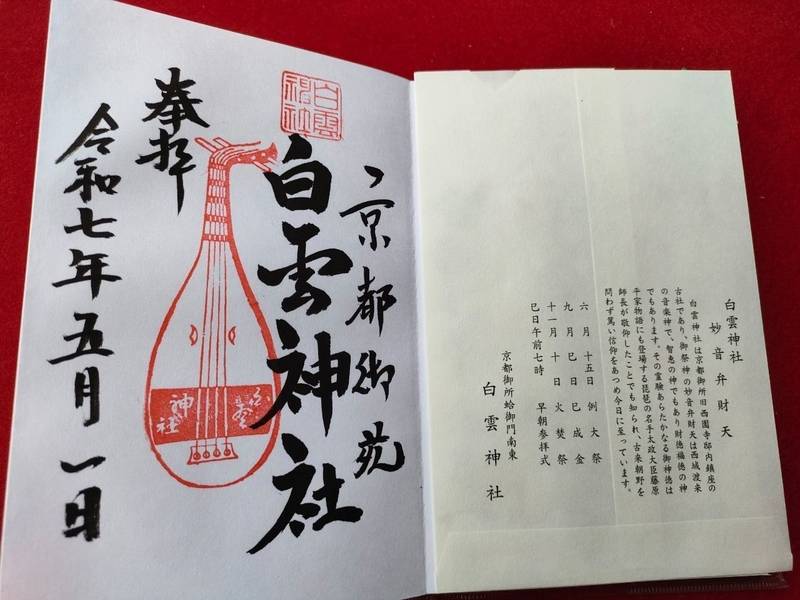 京都御苑
白雲神社
白雲
神社
奉拝
令和七年五月一日
神社
白雲神社
妙音弁財天
白雲神社は京都御所旧西園寺邸内鎮座の
古社であり、御祭神の妙音弁財天は西域渡来
の音楽神で、智恵の神でもあり財徳福徳の神
でもあります。その霊験あらたかなる御神徳は
平家物語にも登場する琵琶の名手太政大臣藤原
師長が敬仰したことでも知られ、古来朝野を
問わず篤い信仰をあつめ今日に至っています。
六月十五日 例大祭
九月巳日 巳成金
十一月十日 火焚祭
巳日午前七時 早朝参拝式
京都御所蛤御門南東
白雲神社